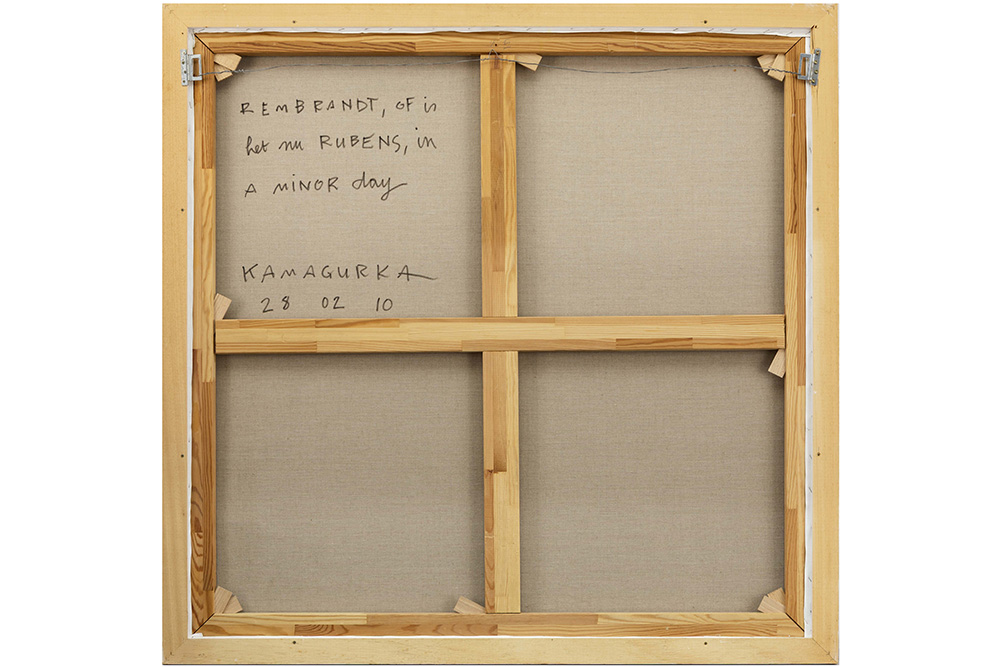 REMBRANDT, OF is
het nu RUBENS, in
A MINOR day
KAMAGURKA
28 02 10